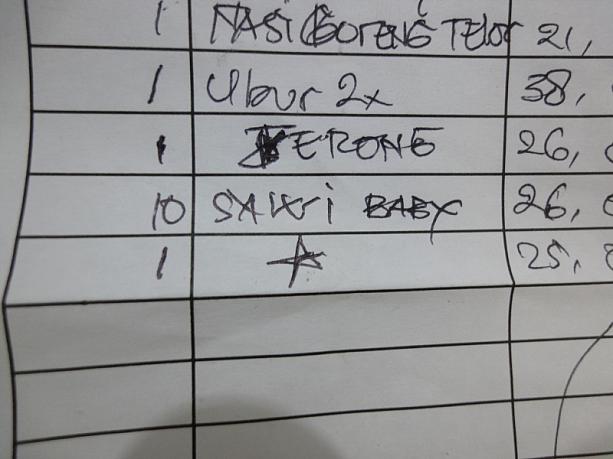 1 NASI GORENG TELOR 21,
1 Ubur 2x 38,
1 TERONG 26,
10 SAWI BABY 26,
1 25,